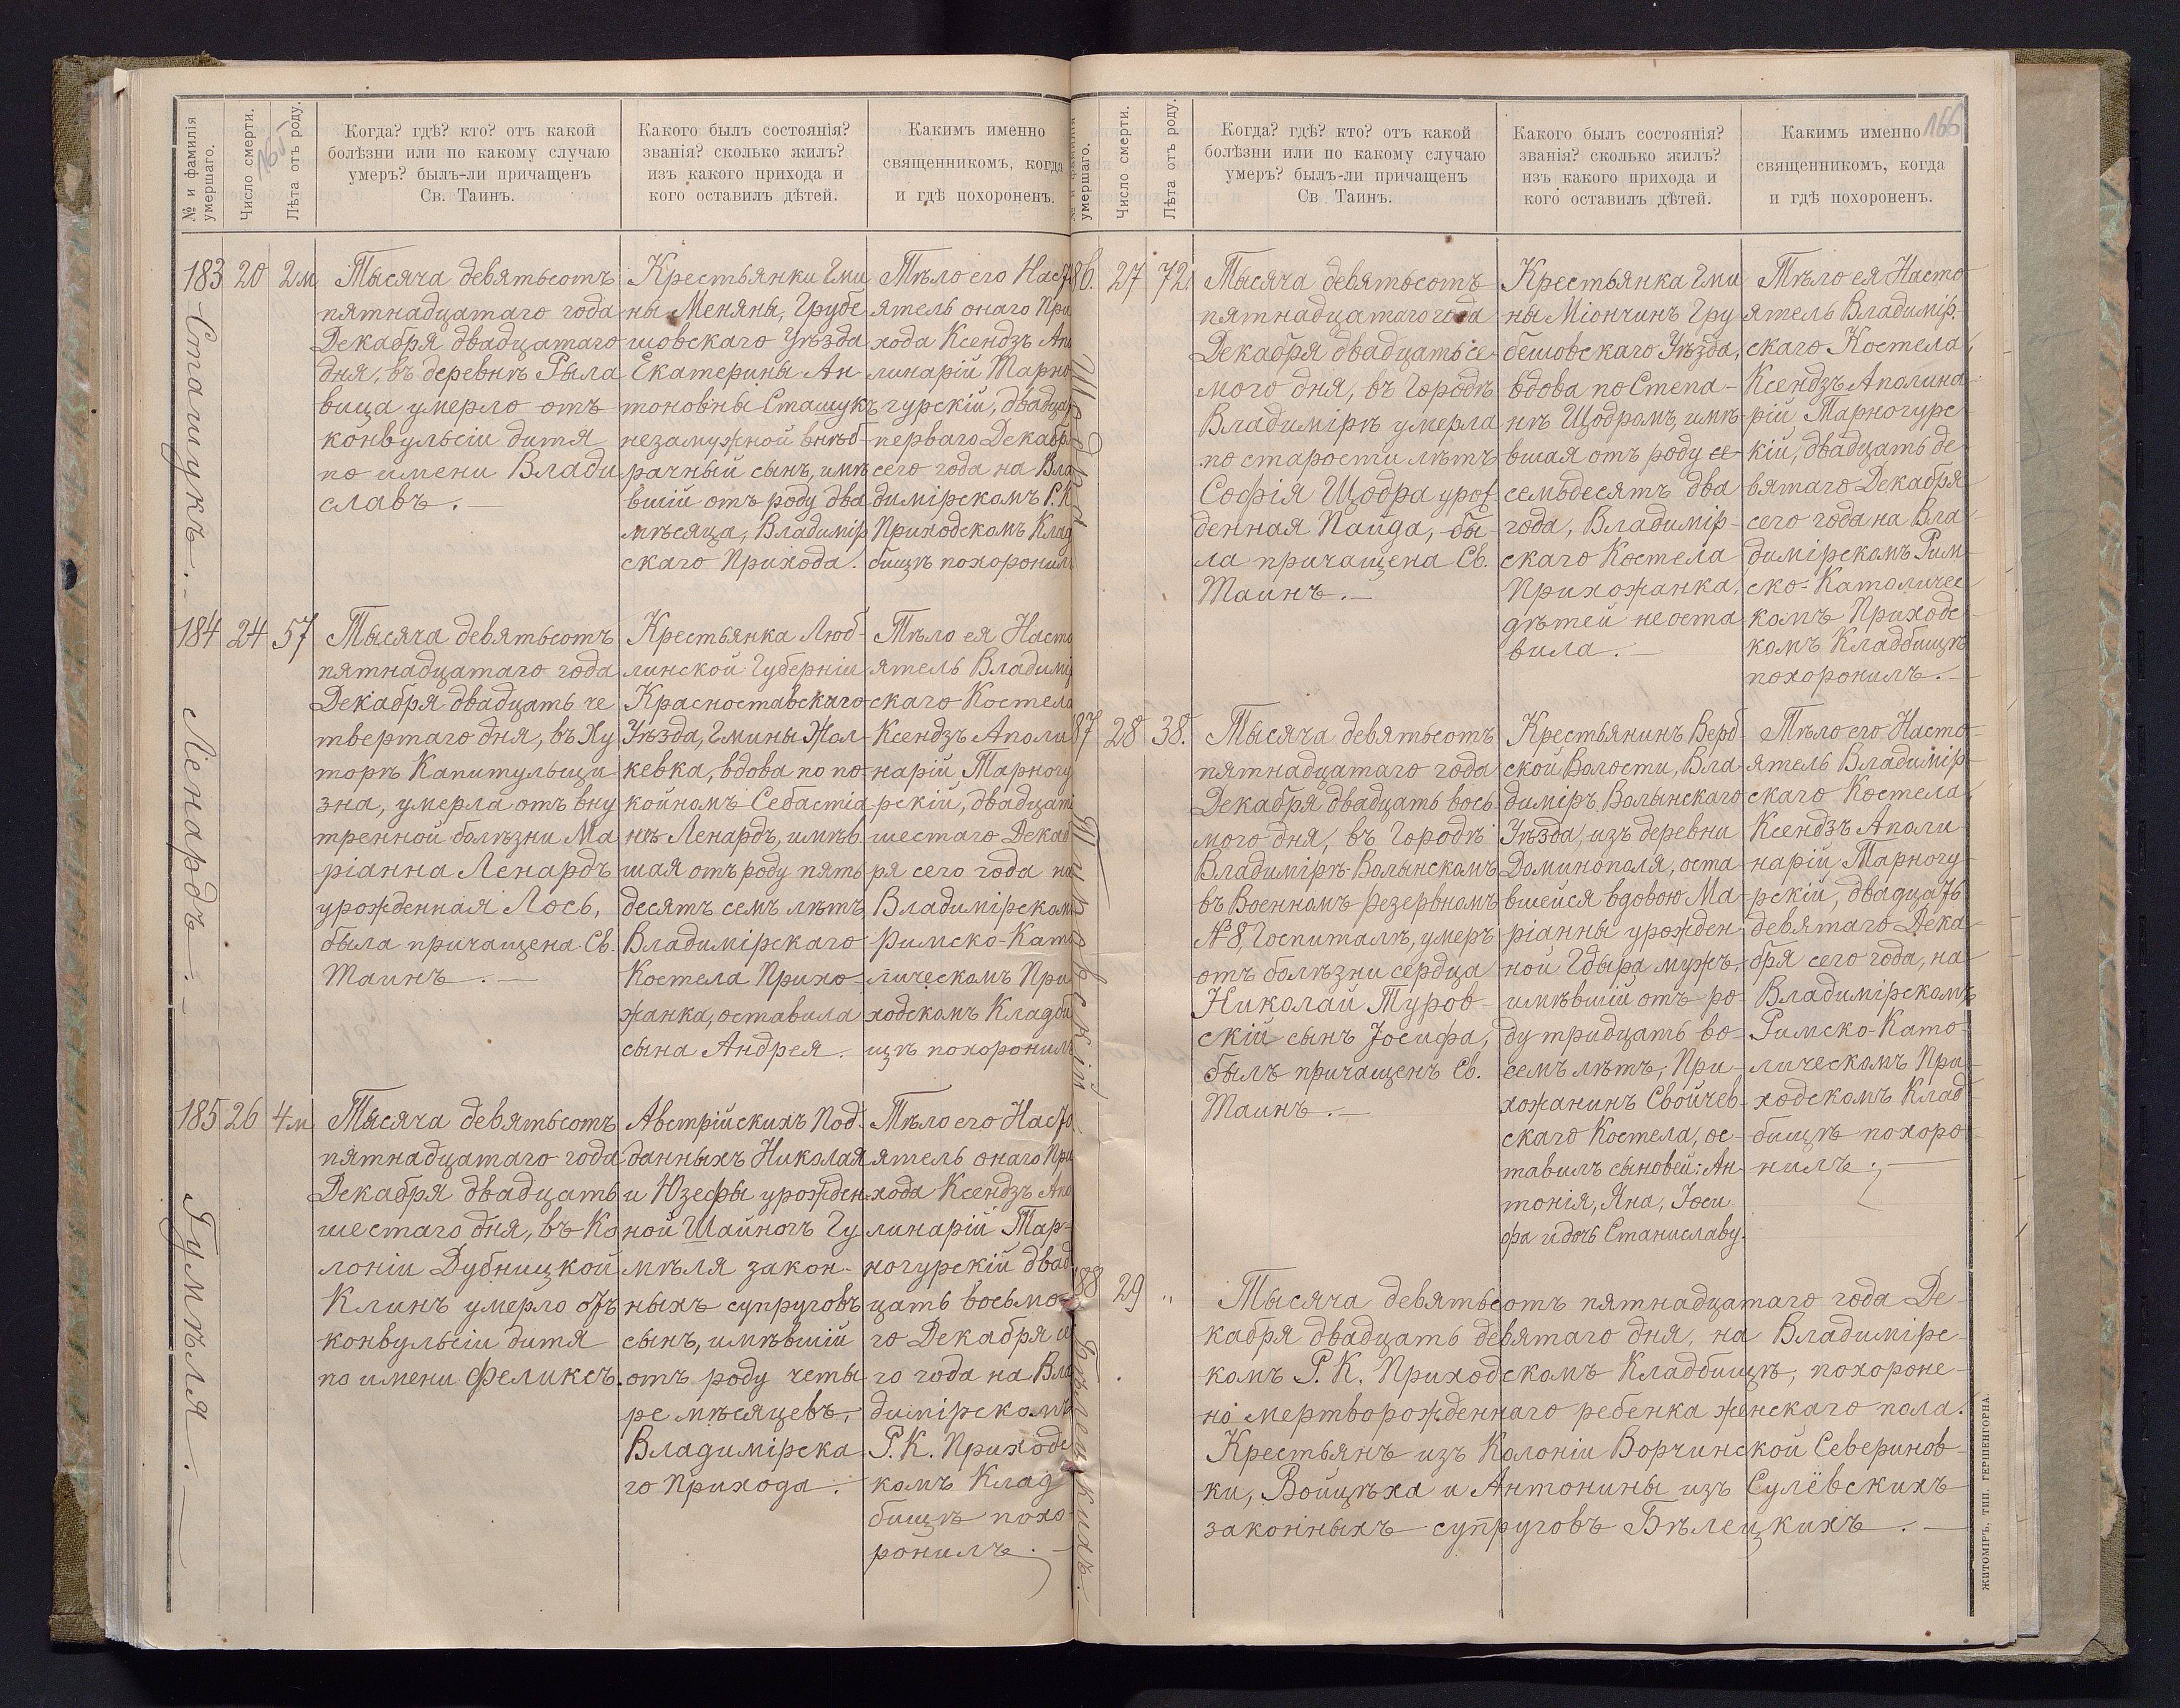 № и фамилія умершаго.
Число смерти.
Лѣта отъ роду.
Когда? гдѣ? кто? отъ какой
болѣзни или по какому случаю
умеръ? былъ-ли причащенъ
Св. Таинъ.
Какого былъ состоянія?
званія? сколько жилъ?
изъ какого прихода и
кого оставилъ дѣтей.
Какимъ именно
священникомъ, когда
и гдѣ похороненъ.
165
183
Сташукъ.
20
2м
Тысяча девятьсотъ
пятнадцатаго года
Декабря двадцатаго
дня, въ деревнѣ Рыла
вица умерло отъ
конвульсіи дитя
по имени Влади
славъ. —
Крестьянки Гми
ны Меняны, Грубе
шовскаго Уѣзда
Екатерины Ан-
тоновны Сташукъ
незамужной внѣб-
рачный сынъ, имѣ
вшій отъ роду два
мѣсяца, Владимір
скаго Прихода.
Тѣло его Насто
ятель онаго При
хода Ксендзъ Апо
линарій Тарно
гурскій, двадца
перваго Декабр
сего года на Вла
димірскомъ Р. К.
Приходскомъ Клад
бищѣ похоронилъ
184
Ленардъ. —
24
57
Тысяча девятьсотъ
пятнадцатаго года
Декабря двадцать че
твертаго дня, въ Ху
торѣ Капитульщи
зна, умерла отъ вну
тренной болѣзни Ма
ріанна Ленардъ
урожденная Лось,
была причащена Св.
Таинъ. —
Крестьянка Люб-
линской Губерніи
Красноставскаго
Уѣзда, Гмины Жол-
кевка, вдова по по-
койномъ Себастіа
нѣ Ленардъ, имѣв.
шая отъ роду пять
десятъ семь лѣтъ,
Владимірскаго
Костела Прихо-
жанка, оставила
сына Андрея.
Тѣло ея Насто
ятель Владимір
скаго Костела
Ксендзъ Аполи
нарій Тарногу
рскій, двадцать
шестаго Декаб
ря сего года на
Владимірскомъ
Римско-Като
лическомъ При
ходскомъ Кладби
щѣ похоронилъ
185
Гумѣля. —
26
4м
Тысяча девятьсотъ
пятнадцатаго года
Декабря двадцать
шестаго дня, въ Ко
лоніи Дубницкой
Клинъ умерло отъ
конвульсіи дитя
по имени Феликсъ.
Австрійскихъ Под-
данныхъ Николая
и Юзефы урожден-
ной Шайногъ Гу
мѣля закон-
ныхъ супруговъ
сынъ, имѣвшій
отъ роду четы
ре мѣсяцевъ,
Владимірска
го Прихода.
Тѣло его Насто
ятель онаго При
хода Ксендзъ Апо
линарій Тар-
ногурскій двад
цать восьмо-
го Декабря се
го года на Вла
димірскомъ
Р. К. Приходс
комъ Клад
бищѣ похо
ронилъ. —
№ и фамилія умершаго.
Число смерти.
Лѣта отъ роду.
Когда? гдѣ? кто? отъ какой
болѣзни или по какому случаю
умеръ? былъ-ли причащенъ
Св. Таинъ.
Какого былъ состоянія?
званія? сколько жилъ?
изъ какого прихода и
кого оставилъ дѣтей.
Какимъ именно
священникомъ, когда
и гдѣ похороненъ.
166
86.
Щодра
27
72.
Тысяча девятьсотъ
пятнадцатаго года
Декабря двадцать се-
мого дня, въ Городѣ
Владимірѣ умерла
по старости лѣтъ
Софія Щодра урож
денная Пайда, бы-
ла причащена Св.
Таинъ. —
Крестьянка Гми
ны Міончинъ Гру
бешовскаго Уѣзда,
вдова по Степа-
нѣ Щодромъ, имѣ-
вшая отъ роду се-
семьдесятъ два
года, Владимір-
скаго Костела
Прихожанка,
дѣтей не оста
вила. —
Тѣло ея Насто
ятель Владимір-
скаго Костела,
Ксендзъ Аполина-
рій Тарногурс
кій, двадцать де-
вятаго Декабря
сего года на Вла
димірскомъ Рим
ско-Католичес
комъ Приходс
комъ Кладбищѣ
похоронилъ. —
87
Туровскій
28
38.
Тысяча девятьсотъ
пятнадцатаго года
Декабря двадцать вось
мого дня, въ Городѣ
Владимірѣ-Волынскомъ
въ Военномъ резервномъ
№ 8, Госпиталѣ, умеръ
отъ болѣзни сердца
Николай Туров-
скій сынъ Іосифа,
былъ причащенъ Св.
Таинъ. —
Крестьянинъ Верб-
ской Волости, Вла
диміръ Волынскаго
Уѣзда, изъ деревни
Доминополя, оста-
вшейся вдовою Ма-
ріанны урожден
ной Гдыра мужъ,
имѣвшій отъ ро-
ду тридцать во-
семь лѣтъ, При-
хожанинъ Свойчев-
скаго Костела, ос-
тавилъ сыновей: Ан-
тонія, Яна, Іоси
фа и дочь Станиславу.
Тѣло его Насто-
ятель Владимір-
скаго Костела,
Ксендзъ Аполи
нарій Тарногу
рскій, двадцать
девятаго Дека
бря сего года, на
Владимірскомъ
Римско-Като-
лическомъ При-
ходскомъ Клад-
бищѣ похоро
нилъ. —
188
Бѣлецкихъ. —
29
"
Тысяча девятьсотъ пятнадцатаго года Де-
кабря двадцать девятаго дня, на Владимірс-
комъ Р. К. Приходскомъ Кладбищѣ, похороне-
но мертворожденнаго ребенка женскаго пола.
Крестьянъ изъ Колоніи Ворчинской Севериновки-
ки, Войцѣха и Антонины изъ Сулёвскихъ
законныхъ супруговъ Бѣлецкихъ. —
ЖИТОМІРЪ, ТИП. ГЕРШЕНГОРНА.